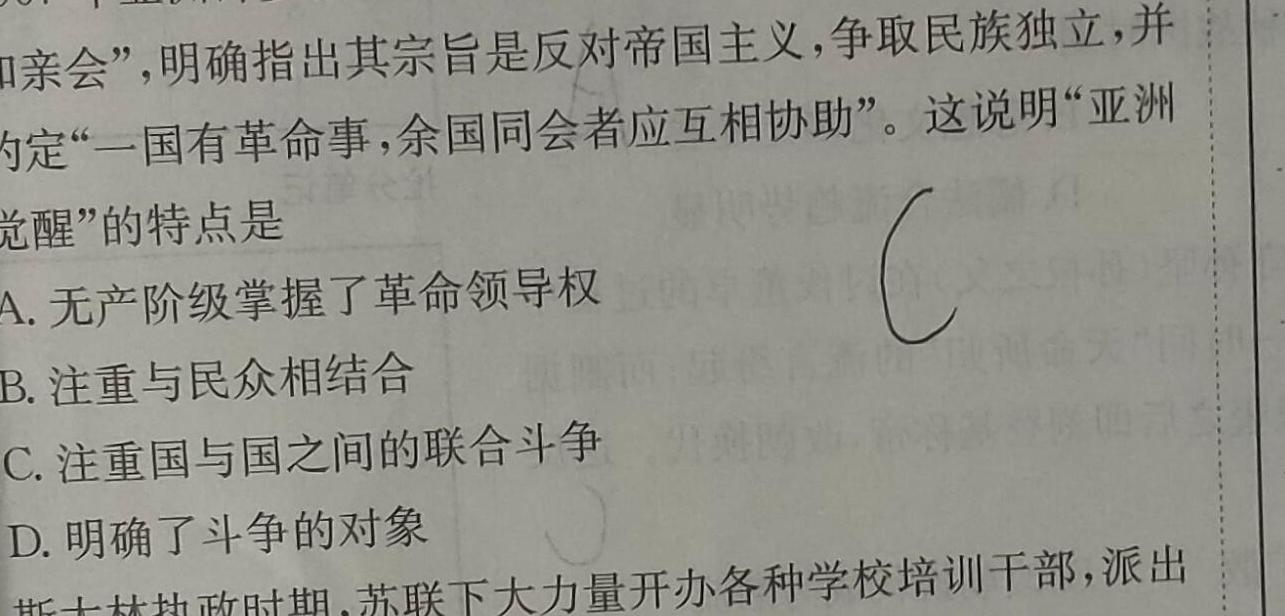 亲会”,明确指出其宗旨是反对帝国主义,争取民族独立,并
定“一国有革命事,余国同会者应互相协助”。这说明“亚洲
觉醒”的特点是
A. 无产阶级掌握了革命领导权
B. 注重与民众相结合
C. 注重国与国之间的联合斗争
D. 明确了斗争的对象
C
斯大林执政时期,苏联下大力量开办各种学校培训干部,派出